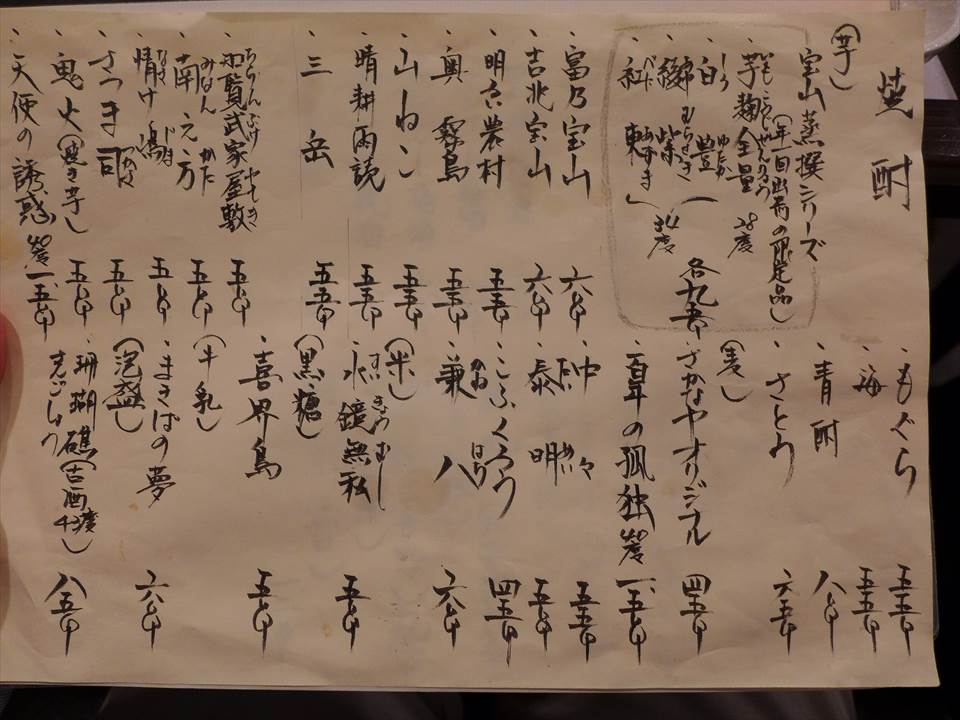 焼酎
(芋)
宝山蒸撰シリーズ
(年一回出荷の限定品)
芋麹全量 28度
白豊
綾紫
紅東
34度
各九五〇
・富乃宝山 六〇〇
・吉兆宝山 六〇〇
・明るい農村 五五〇
・奥霧島 五五〇
・山ねこ 五五〇
・晴耕雨読 五五〇
・三岳 五五〇
・知覧武家屋敷 五〇〇
・南之方 五〇〇
・情け嶋 五〇〇
・さつま司 五〇〇
・鬼火(焼き芋) 五〇〇
・天使の誘惑 40度 一、五〇〇
・もぐら 五五〇
・海 五五〇
・青酎 八〇〇
・さとう 六五〇
(麦)
さかなやオリジナル 四五〇
・百年の孤独 40度 一、五〇〇
・中々 五五〇
・泰明 五〇〇
・こふくろう 四五〇
・兼八 六〇〇
(米)
・水鏡無私 五〇〇
(黒糖)
・喜界島 五〇〇
(牛乳)
・まきばの夢 六〇〇
(泡盛)
・珊瑚礁(古酒43度) 八五〇